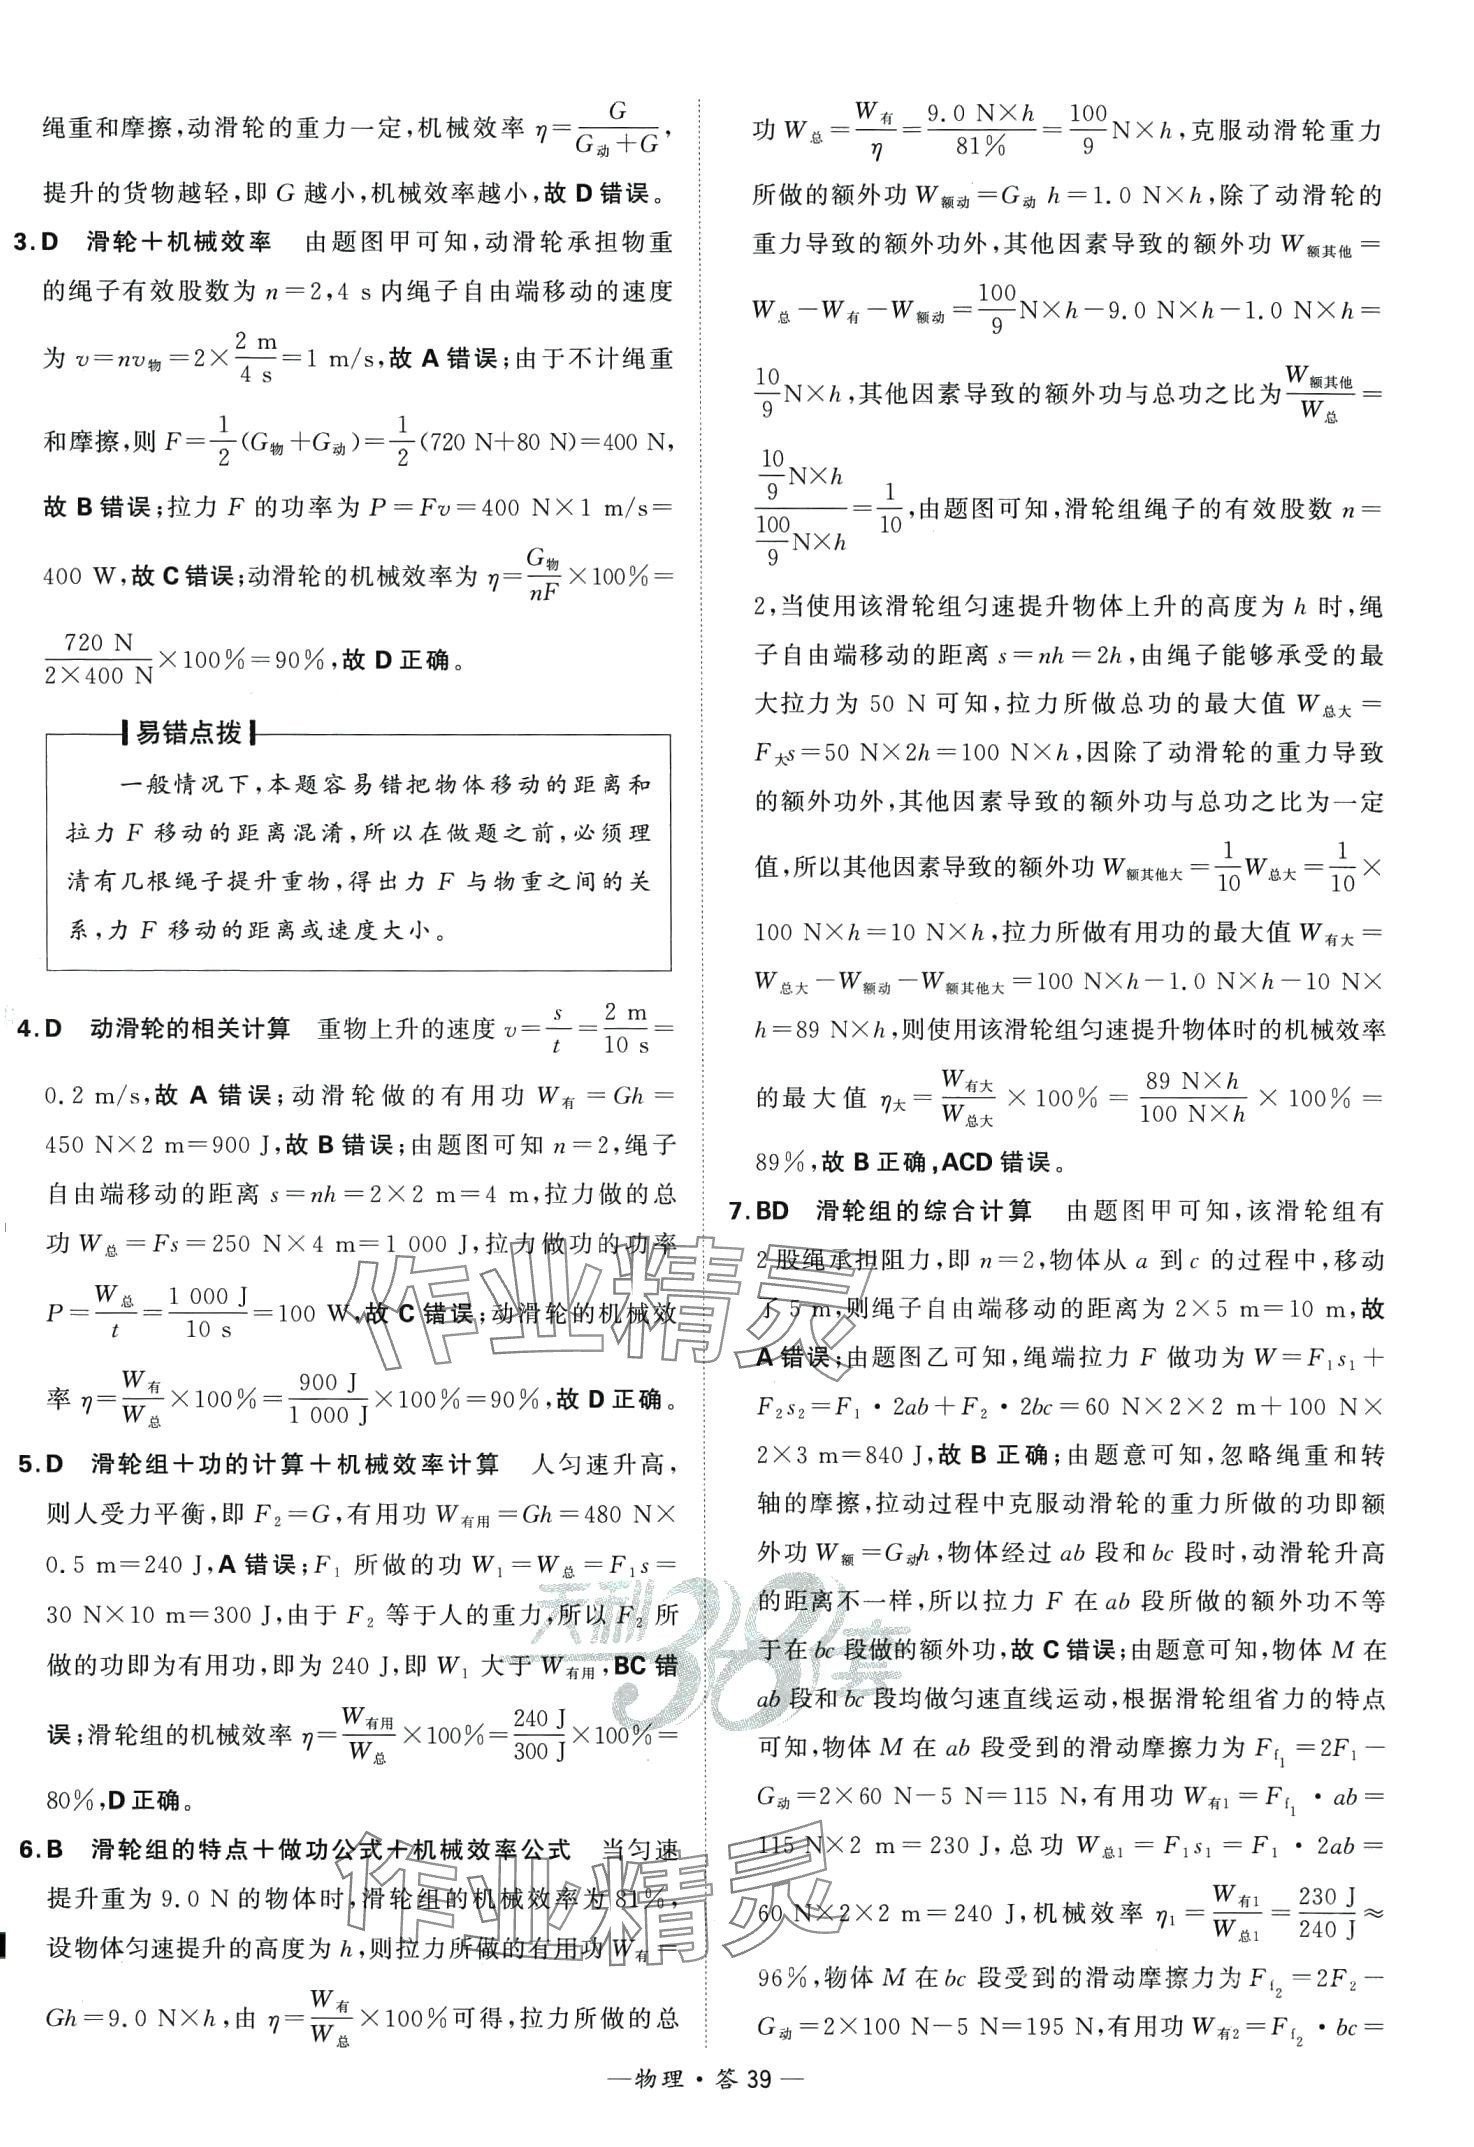 绳重和摩擦,动滑轮的重力一定,机械效率 η=G/(G动+G),
提升的货物越轻,即 G 越小,机械效率越小,故 D 错误。
3.D 滑轮+机械效率 由题图甲可知,动滑轮承担物重
的绳子有效股数为 n=2,4 s 内绳子自由端移动的速度
为 v=nv物=2×2 m/4 s=1 m/s,故 A 错误;由于不计绳重
和摩擦,则 F=1/2(G物+G动)=1/2(720 N+80 N)=400 N,
故 B 错误;拉力 F 的功率为 P=Fv=400 N×1 m/s=
400 W,故 C 错误;动滑轮的机械效率为 η=G物/nF×100%=
720 N/(2×400 N)×100%=90%,故 D 正确。
易错点拨
一般情况下,本题容易错把物体移动的距离和
拉力 F 移动的距离混淆,所以在做题之前,必须理
清有几根绳子提升重物,得出力 F 与物重之间的关
系,力 F 移动的距离或速度大小。
4.D 动滑轮的相关计算 重物上升的速度 v=s/t=2 m/10 s=
0.2 m/s,故 A 错误;动滑轮做的有用功 W有=Gh=
450 N×2 m=900 J,故 B 错误;由题图可知 n=2,绳子
自由端移动的距离 s=nh=2×2 m=4 m,拉力做的总
功 W总=Fs=250 N×4 m=1 000 J,拉力做功的功率
P=W总/t=1 000 J/10 s=100 W,故 C 错误;动滑轮的机械效
率 η=W有/W总×100%=900 J/1 000 J×100%=90%,故 D 正确。
5.D 滑轮组+功的计算+机械效率计算 人匀速升高,
则人受力平衡,即 F₂=G,有用功 W有用=Gh=480 N×
0.5 m=240 J,A 错误;F₁ 所做的功 W₁=W总=F₁s=
30 N×10 m=300 J,由于 F₂ 等于人的重力,所以 F₂ 所
做的功即为有用功,即为 240 J,即 W₁ 大于 W有用,BC 错
误;滑轮组的机械效率 η=W有用/W总×100%=240 J/300 J×100%=
80%,D 正确。
6.B 滑轮组的特点+做功公式+机械效率公式 当匀速
提升重为 9.0 N 的物体时,滑轮组的机械效率为 81%,
设物体匀速提升的高度为 h,则拉力所做的有用功 W有=
Gh=9.0 N×h,由 η=W有/W总×100%可得,拉力所做的总
功 W总=W有/η=9.0 N×h/81%=100/9 N×h,克服动滑轮重力
所做的额外功 W额动=G动 h=1.0 N×h,除了动滑轮的
重力导致的额外功外,其他因素导致的额外功 W额其他=
W总-W有-W额动=100/9 N×h-9.0 N×h-1.0 N×h=
10/9 N×h,其他因素导致的额外功与总功之比为W额其他/W总=
(10/9 N×h)/(100/9 N×h)=1/10,由题图可知,滑轮组绳子的有效股数 n=
2,当使用该滑轮组匀速提升物体上升的高度为 h 时,绳
子自由端移动的距离 s=nh=2h,由绳子能够承受的最
大拉力为 50 N 可知,拉力所做总功的最大值 W总大=
F大s=50 N×2h=100 N×h,因除了动滑轮的重力导致
的额外功外,其他因素导致的额外功与总功之比为一定
值,所以其他因素导致的额外功 W额其他大=1/10W总大=1/10×
100 N×h=10 N×h,拉力所做有用功的最大值 W有大=
W总大-W额动-W额其他大=100 N×h-1.0 N×h-10 N×
h=89 N×h,则使用该滑轮组匀速提升物体时的机械效率
的最大值 η大=W有大/W总大×100%=89 N×h/100 N×h×100%=
89%,故 B 正确,ACD 错误。
7.BD 滑轮组的综合计算 由题图甲可知,该滑轮组有
2 股绳承担阻力,即 n=2,物体从 a 到 c 的过程中,移动
了 5 m,则绳子自由端移动的距离为 2×5 m=10 m,故
A 错误;由题图乙可知,绳端拉力 F 做功为 W=F₁s₁+
F₂s₂=F₁·2ab+F₂·2bc=60 N×2×2 m+100 N×
2×3 m=840 J,故 B 正确;由题意可知,忽略绳重和转
轴的摩擦,拉动过程中克服动滑轮的重力所做的功即额
外功 W额=G动h,物体经过 ab 段和 bc 段时,动滑轮升高
的距离不一样,所以拉力 F 在 ab 段所做的额外功不等
于在 bc 段做的额外功,故 C 错误;由题意可知,物体 M 在
ab 段和 bc 段均做匀速直线运动,根据滑轮组省力的特点
可知,物体 M 在 ab 段受到的滑动摩擦力为 Ff₁=2F₁-
G动=2×60 N-5 N=115 N,有用功 W有1=Ff₁·ab=
115 N×2 m=230 J,总功 W总1=F₁s₁=F₁·2ab=
60 N×2×2 m=240 J,机械效率 η₁=W有1/W总1=230 J/240 J≈
96%,物体 M 在 bc 段受到的滑动摩擦力为 Ff₂=2F₂-
G动=2×100 N-5 N=195 N,有用功 W有2=Ff₂·bc=
作业精灵
天利38套
作业精灵
—物理·答 39—